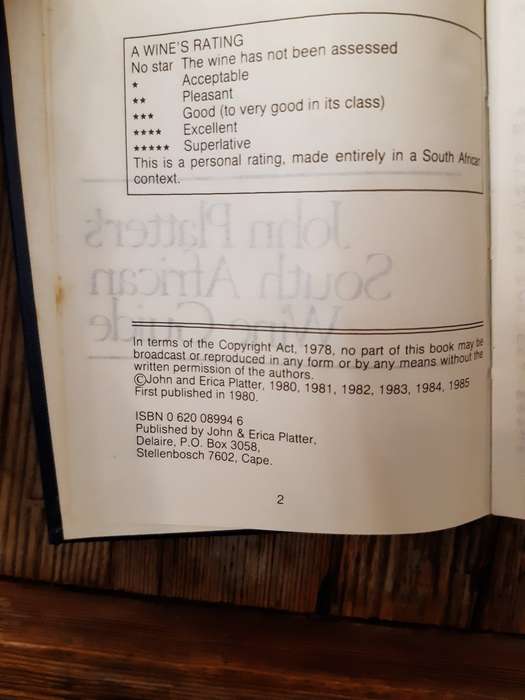 A WINE'S RATING
No star The wine has not been assessed
* Acceptable
** Pleasant
*** Good (to very good in its class)
**** Excellent
***** Superlative
This is a personal rating, made entirely in a South African
context.
John Platter's
South African
Wine Guide
In terms of the Copyright Act, 1978, no part of this book may be
broadcast or reproduced in any form or by any means without the
written permission of the authors.
©John and Erica Platter, 1980, 1981, 1982, 1983, 1984, 1985
First published in 1980.
ISBN 0 620 08994 6
Published by John & Erica Platter,
Delaire, P.O. Box 3058,
Stellenbosch 7602, Cape.
2